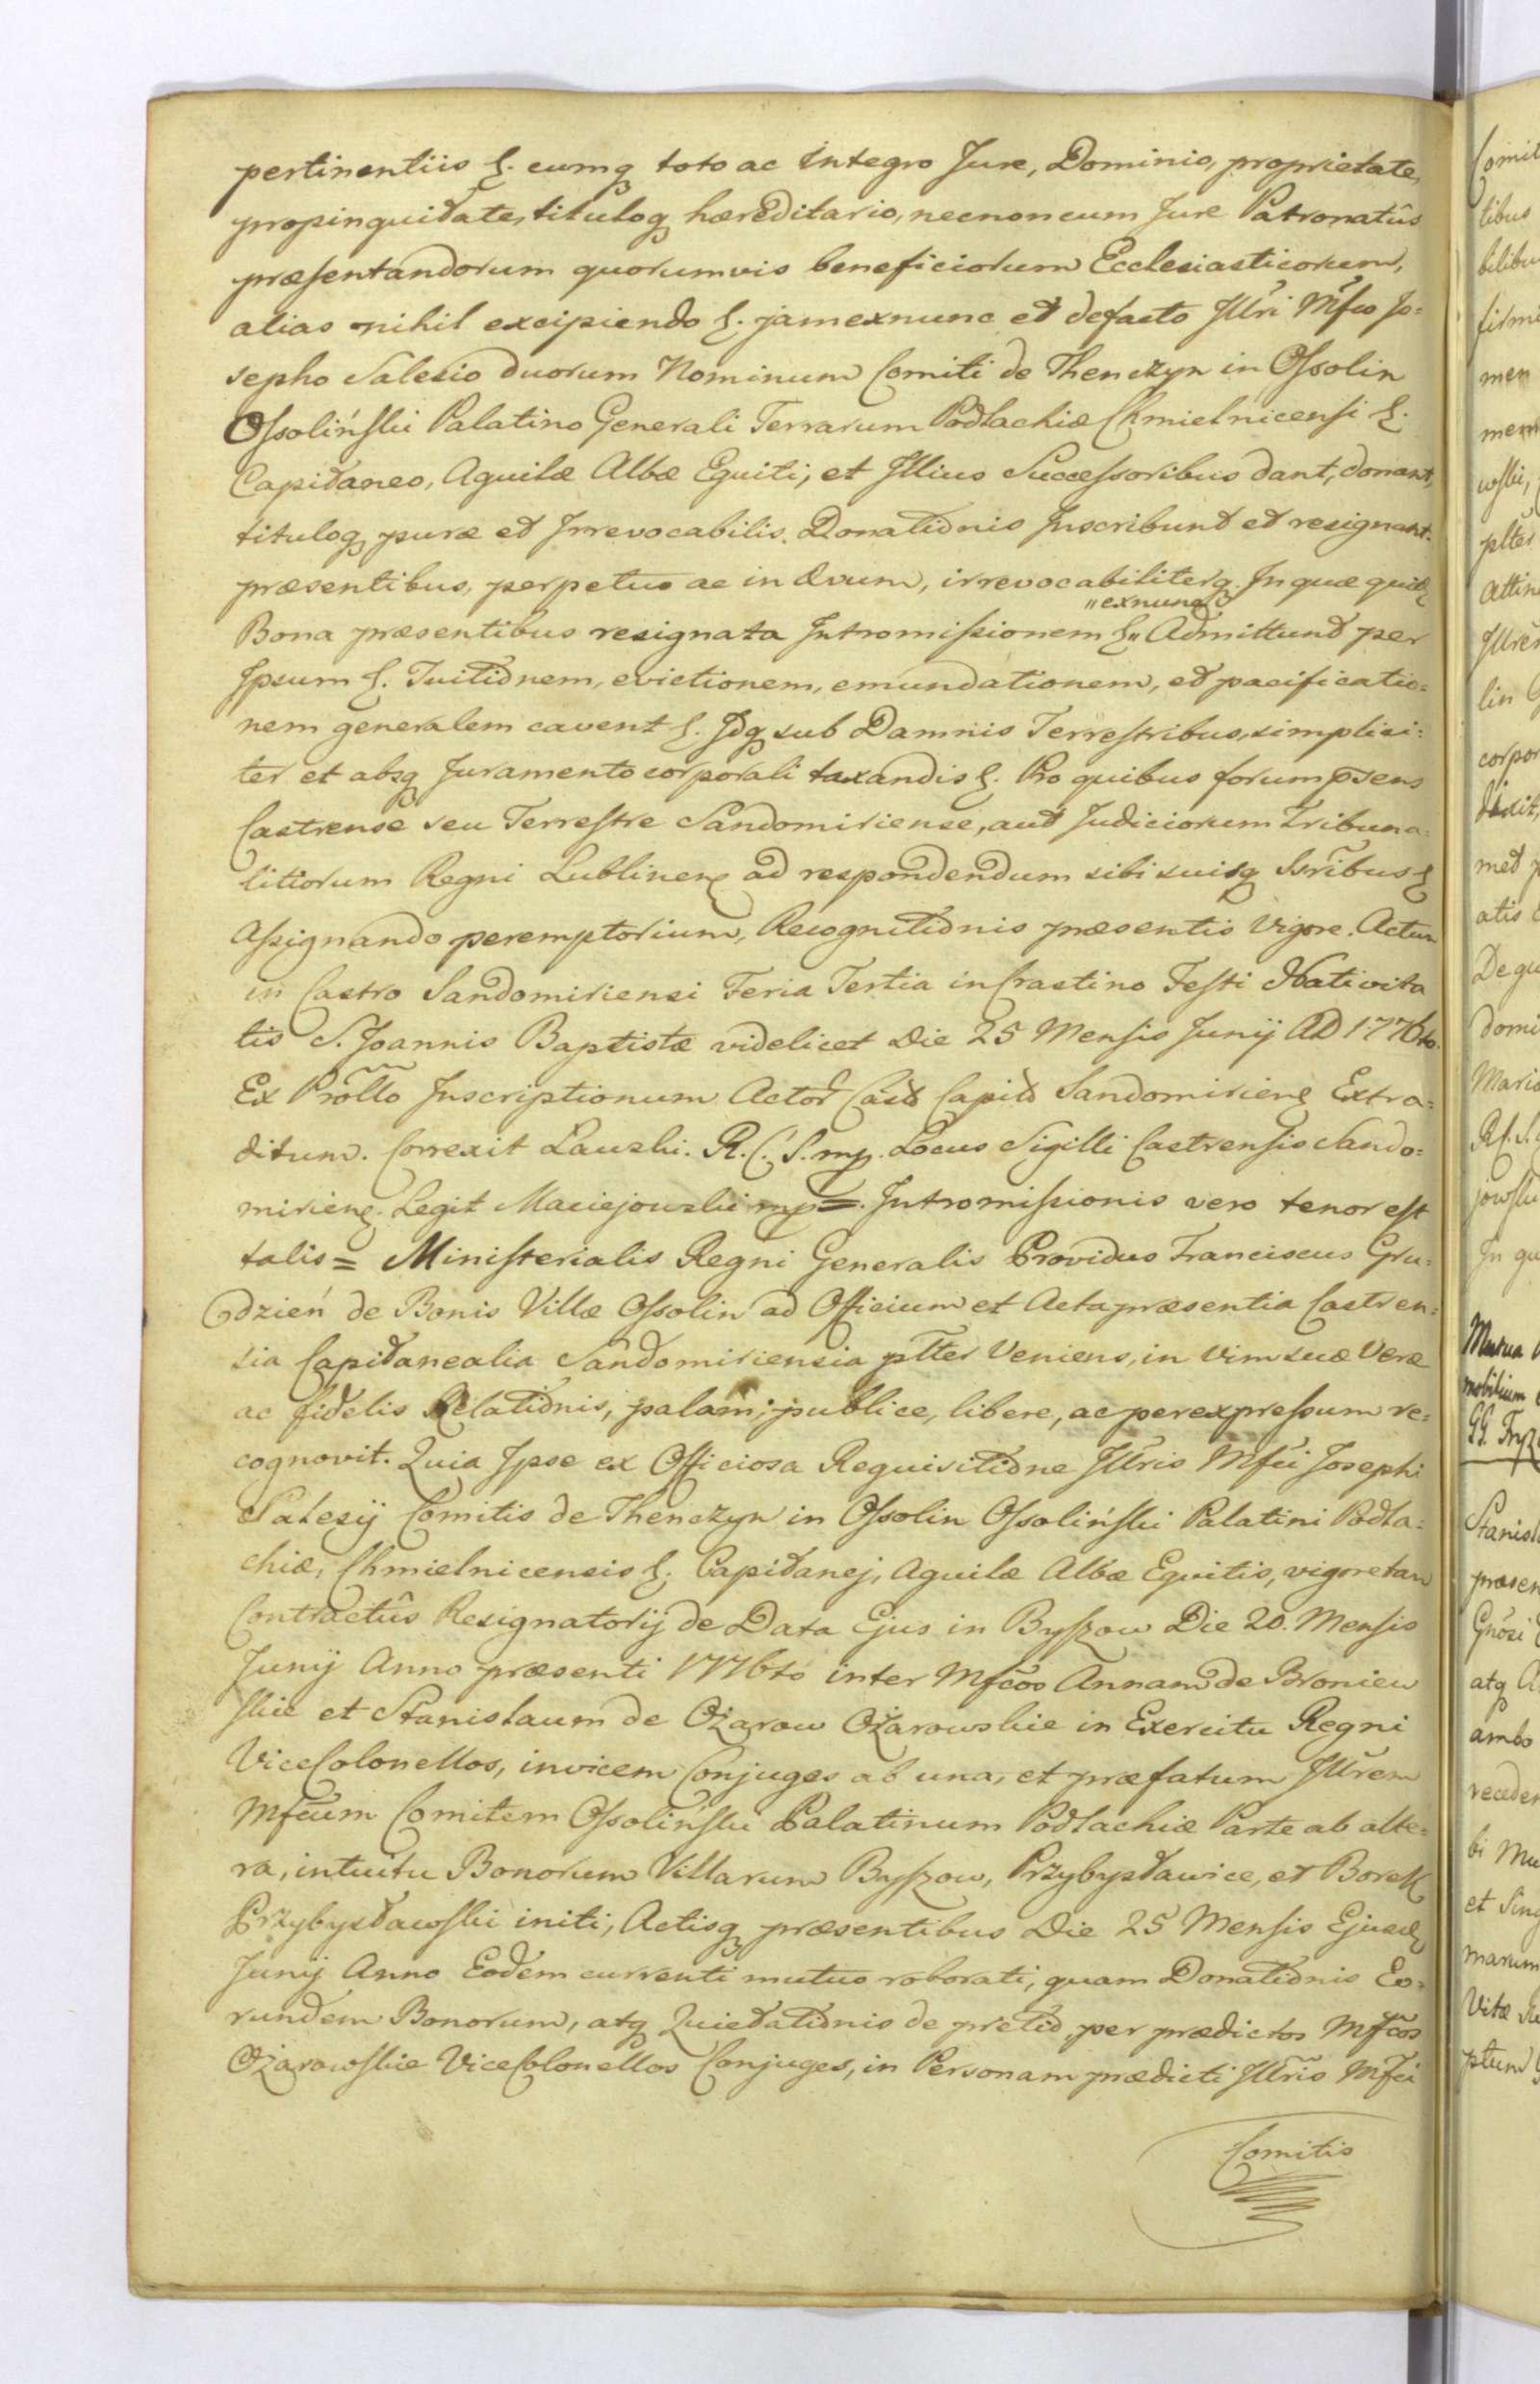 pertinentiis &. cumq toto ac integro Jure, Dominio, proprietate,
propinquitate, tituloq hæreditario, necnon cum Jure Patronatûs
præsentandorum quorumvis beneficiorum Ecclesiasticorum,
alias nihil excipiendo &. jam exnunc et defacto Jllri Mfco Jo=
sepho Salesio duorum Nominum Comiti de Thenczyn in Ossolin
Ossoliński Palatino Generali Terrarum Podlachiæ Chmielnicensi &.
Capitaneo, Aquilæ Albæ Equiti, et Jllius Successoribus dant, donant,
tituloq puræ et Jrrevocabilis Donationis Jnscribunt et resignant.
præsentibus, perpetuo ac in Ævum, irrevocabiliterq. Jn quæ quidę
"exnunc
Bona præsentibus resignata Jntromissionem &" Admittunt per
Jpsum &. Tuitionem, evictionem, emundationem, et pacificatio=
nem generalem cavent &. Jdq sub Damnis Terrestribus, simplici:
ter et absq Juramento corporali taxandis &. Pro quibus forum p̄sens
Castrense seu Terrestre Sandomiriense, aut Judiciorum Tribuna=
litiorum Regni Lublinenę ad respondendum sibi suisq Ssribus &
Assignando peremptorium, Recognitionis præsentis Vigore. Actum
in Castro Sandomiriensi Feria Tertia in Crastino Festi Nativita
tis S. Joannis Baptistæ videlicet Die 25 Mensis Junÿ AD 1776to.
Ex Prõtllo Jnscriptionum Actor Cast Capit Sandomirienę Extra=
ditum. Correxit Lauski. R. C. S. mp. Locus Sigilli Castrensis Sando=
mirienę. Legit Maciejowski mp =. Jntromissionis vero tenor est
talis = Ministerialis Regni Generalis Providus Franciscus Gru=
dzień de Bonis Villæ Ossolin ad Officium et Acta præsentia Castren=
sia Capitanealia Sandomiriensia plter Veniens, in vim suæ Veræ
ac fidelis Relationis, palam, publice, libere, ac per expressum re=
cognovit. Quia Jpse ex Officiosa Requisitione Jllris Mfci Josephi
Salesÿ Comitis de Thenczyn in Ossolin Ossoliński Palatini Podla=
chiæ, Chmielnicensis &. Capitanej, Aquilæ Albæ Equitis, vigore tam
Contractûs Resignatorÿ de Data Ejus in Byszow Die 20. Mensis
Junÿ Anno præsenti 1776to inter Mfcos Annam de Broniew
skie et Stanislaum de Ożarow Ożarowskie in Exercitu Regni
ViceColonellos, invicem Conjuges ab una, et præfatum Jllrem
Mfcum Comitem Ossoliński Palatinum Podlachiæ Parte ab alte=
ra, intuitu Bonorum Villarum Byszow, Przybysławice, et Borek
Przybysławski initi, Actisq præsentibus Die 25 Mensis Ejusdę
Junÿ Anno Eodem currenti mutuo roborati, quam Donationis Eo=
rundem Bonorum, atq Quietationis de pretio, per prædictos Mfcos
Ożarowskie ViceColonellos Conjuges, in Personam prædicti Jllris Mfci
Comitis